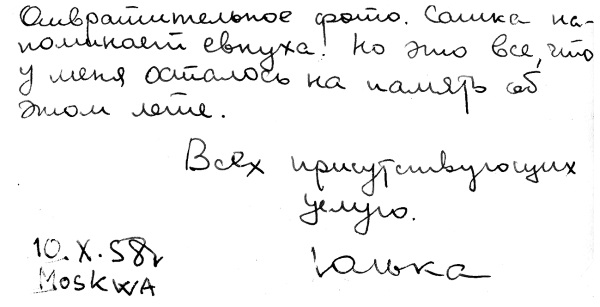 Отвратительное фото. Сашка на-
поминает евнуха! Но это все, что
у меня осталось на память об
этом лете.
Всех присутствующих
целую.
Юлька
10.X.58г
Moskwa